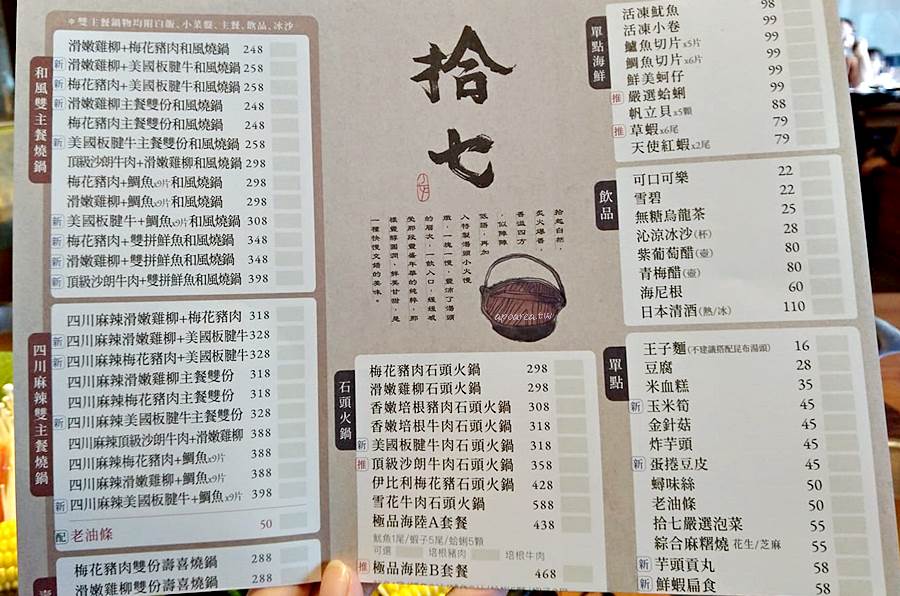 *雙主餐鍋物均附白飯、小菜盤、主餐、飲品、冰沙
和風雙主餐燒鍋
滑嫩雞柳+梅花豬肉和風燒鍋 248
新 滑嫩雞柳+美國板腱牛和風燒鍋 258
新 梅花豬肉+美國板腱牛和風燒鍋 258
新 滑嫩雞柳主餐雙份和風燒鍋 248
梅花豬肉主餐雙份和風燒鍋 248
新 美國板腱牛主餐雙份和風燒鍋 258
頂級沙朗牛肉+滑嫩雞柳和風燒鍋 298
梅花豬肉+鯛魚x9片和風燒鍋 298
滑嫩雞柳+鯛魚x9片和風燒鍋 298
新 美國板腱牛+鯛魚x9片和風燒鍋 308
新 梅花豬肉+雙拼鮮魚和風燒鍋 348
新 滑嫩雞柳+雙拼鮮魚和風燒鍋 348
新 頂級沙朗牛肉+雙拼鮮魚和風燒鍋 398
四川麻辣雙主餐燒鍋
四川麻辣滑嫩雞柳+梅花豬肉 318
新 四川麻辣滑嫩雞柳+美國板腱牛 328
新 四川麻辣梅花豬肉+美國板腱牛 328
四川麻辣滑嫩雞柳主餐雙份 318
四川麻辣梅花豬肉主餐雙份 318
新 四川麻辣美國板腱牛主餐雙份 328
四川麻辣頂級沙朗牛肉+滑嫩雞柳 388
四川麻辣梅花豬肉+鯛魚x9片 388
四川麻辣滑嫩雞柳+鯛魚x9片 388
新 四川麻辣美國板腱牛+鯛魚x9片 398
配 老油條 50
梅花豬肉雙份壽喜燒鍋 288
滑嫩雞柳雙份壽喜燒鍋 288
拾七
拾起自然，
炙火爆香，
香溢四方
，似陣陣
低語，再加
入特製湯頭小火慢
燉，一境一慢，豐沛了湯頭
的層次，一飲入口，緩緩感
受那段豐盛年華的純粹，那
樣豐醇圓潤，鮮美甘甜，是
一種快慢交錯的美味。
apoarea.tw
石頭火鍋
梅花豬肉石頭火鍋 298
滑嫩雞柳石頭火鍋 298
香嫩培根豬肉石頭火鍋 308
香嫩培根牛肉石頭火鍋 318
新 美國板腱牛肉石頭火鍋 318
推 頂級沙朗牛肉石頭火鍋 358
伊比利梅花豬石頭火鍋 428
雪花牛肉石頭火鍋 588
極品海陸A套餐 438
魷魚1尾/蝦子5尾/蛤蜊5顆
可選 培根豬肉 培根牛肉
推 極品海陸B套餐 468
單點海鮮
活凍魷魚 98
活凍小卷 99
鱸魚切片x5片 99
鯛魚切片x6片 99
鮮美蚵仔 99
推 嚴選蛤蜊 99
帆立貝x5顆 88
推 草蝦x6尾 79
天使紅蝦x2尾 79
飲品
可口可樂 22
雪碧 22
無糖烏龍茶 25
沁涼冰沙(杯) 28
紫葡萄醋(壺) 80
青梅醋(壺) 80
海尼根 60
日本清酒(熱/冰) 110
單點
王子麵(不建議搭配昆布湯頭) 16
豆腐 28
米血糕 35
新 玉米筍 45
金針菇 45
炸芋頭 45
新 蛋捲豆皮 45
蟳味絲 50
老油條 50
拾七嚴選泡菜 55
綜合麻糬燒 花生/芝麻 55
新 芋頭貢丸 58
新 鮮蝦扁食 58